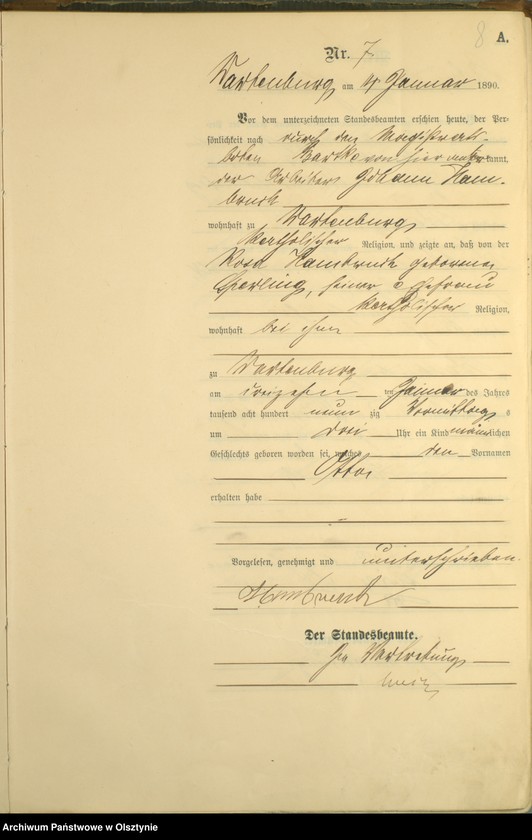 8 A.
Nr. 7.
Wartenburg am 14 Januar 1890.
Vor dem unterzeichneten Standesbeamten erschien heute, der Per-
sönlichkeit nach durch den Magistrats-
boten Bartko von hier anerkannt,
der Arbeiter Johann Ham-
bruch
wohnhaft zu Wartenburg
katholischer Religion, und zeigte an, daß von der
Rosa Hambruch geborenen
seiner Ehefrau
katholischer Religion,
wohnhaft bei ihm
zu Wartenburg
am dreizehn ten Januar des Jahres
tausend acht hundert neun zig Vormittags
um drei Uhr ein Kind männlichen
Geschlechts geboren worden sei, welches den Vornamen
Otto
erhalten habe
Vorgelesen, genehmigt und unterschrieben.
Hambruch
Der Standesbeamte.
In Vertretung
Archiwum Państwowe w Olsztynie